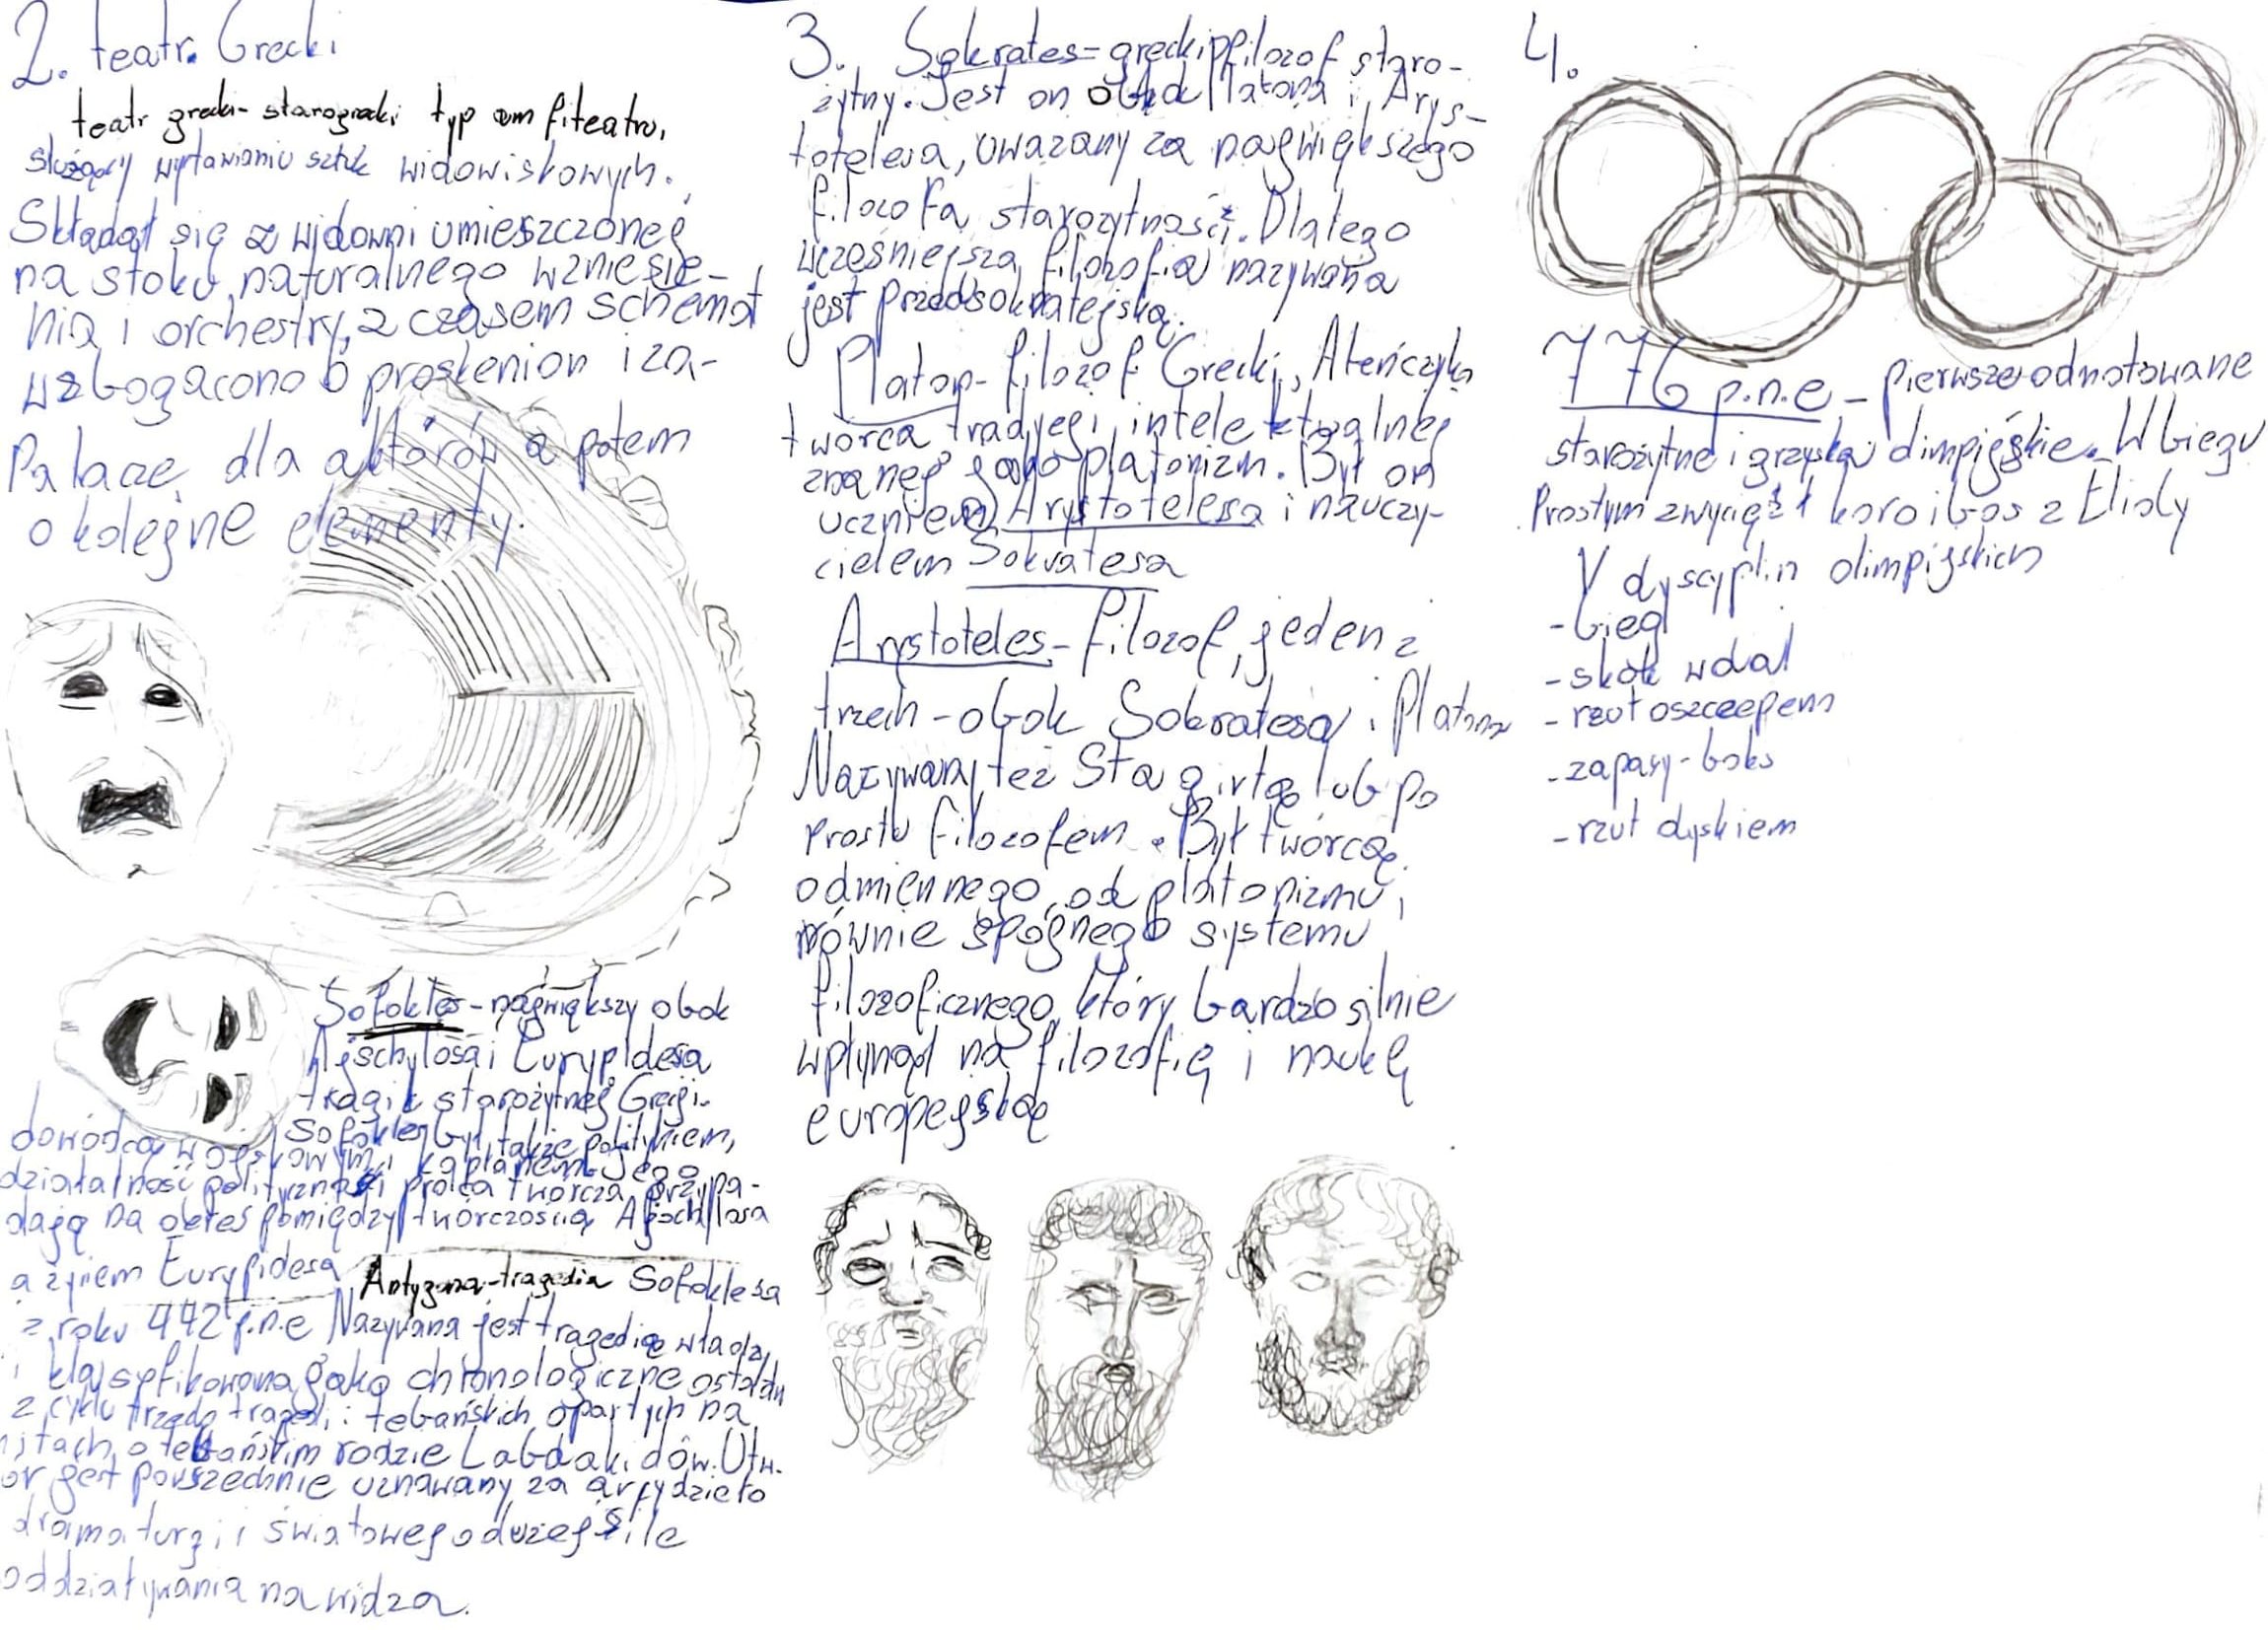 2. teatr. Grecki
teatr grecki - starogrecki typ amfiteatru,
służący wystawianiu sztuk widowiskowych.
Składał się z widowni umieszczonej
na stoku naturalnego wzniesie-
nia i orchestry, z czasem schemat
wzbogacono o proskenion i za-
Palacze dla aktórów a potem
o kolejne elementy.
Sofokles - największy obok
Ajschylosa i Eurypidesa
tragik starożytnej Grecji.
Sofokles był także politykiem,
dowódcą wojskowym i kapłanem. Jego
działalność polityczna i praca twórcza przypa-
dają na okres pomiędzy twórczością Ajschylosa
a życiem Eurypidesa
Antygona - tragedia Sofoklesa
z roku 442 p.n.e Nazywana jest tragedią władzy
i klasyfikowana jako chronologiczne ostatnia
z cyklu trzech tragedii tebańskich opartych na
mitach o tebańskim rodzie Labdakidów. Utw-
ór jest powszechnie uznawany za arcydzieło
dramaturgii światowej o dużej sile
oddziaływania na widza.
3. Sokrates - grecki filozof staro-
żytny. Jest on obok Platona i Arys-
totelesa, uważany za największego
filozofa starożytności. Dlatego
wcześniejsza filozofia nazywana
jest przedsokratejską.
Platon - filozof Grecki, Ateńczyk
twórca tradycji intelektualnej
znanej jako platonizm. Był on
uczniem Arystotelesa i nauczy-
cielem Sokratesa
Arystoteles - filozof, jeden z
trzech - obok Sokratesa i Platona
Nazywany też Stagirtą lub po
prostu filozofem. Był twórcą
odmiennego od platonizmu i
równie spójnego systemu
filozoficznego, który bardzo silnie
wpłynął na filozofię i naukę
europejską
4.
776 p.n.e - pierwsze odnotowane
starożytne igrzyska olimpijskie. W biegu
Prostym zwyciężł koroibos z Elidy
V dyscyplin olimpijskich
- bieg
- skok w dal
- rzut oszczepem
- zapasy - boks
- rzut dyskiem